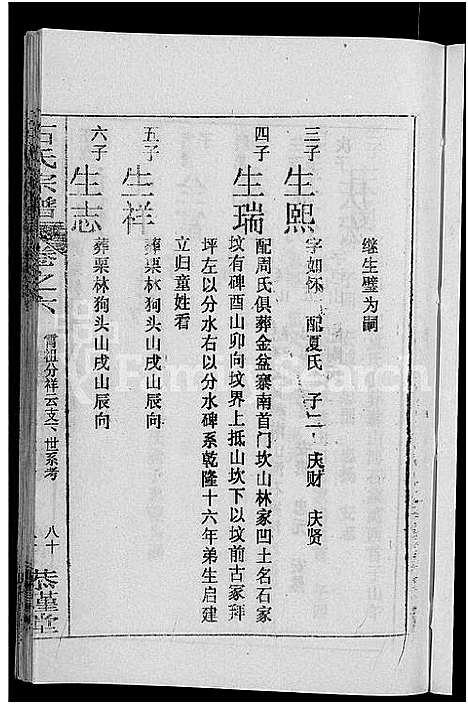 继生璧为嗣
三子 生熙 字如怀 配夏氏 子二 庆财 庆贤
四子 生瑞 配周氏俱葬金盆寨南首门坎山林家凹土名石家
坟有碑酉山卯向坟界上抵山坎下以坟前古冢拜
坪左以分水右以分水碑系乾隆十六年弟生启建
立归童姓看
五子 生祥 葬栗林狗头山戌山辰向
六子 生志 葬栗林狗头山戌山辰向
石氏宗谱 卷之六 霄祖分祥云支下世系考 八十 恭谨堂